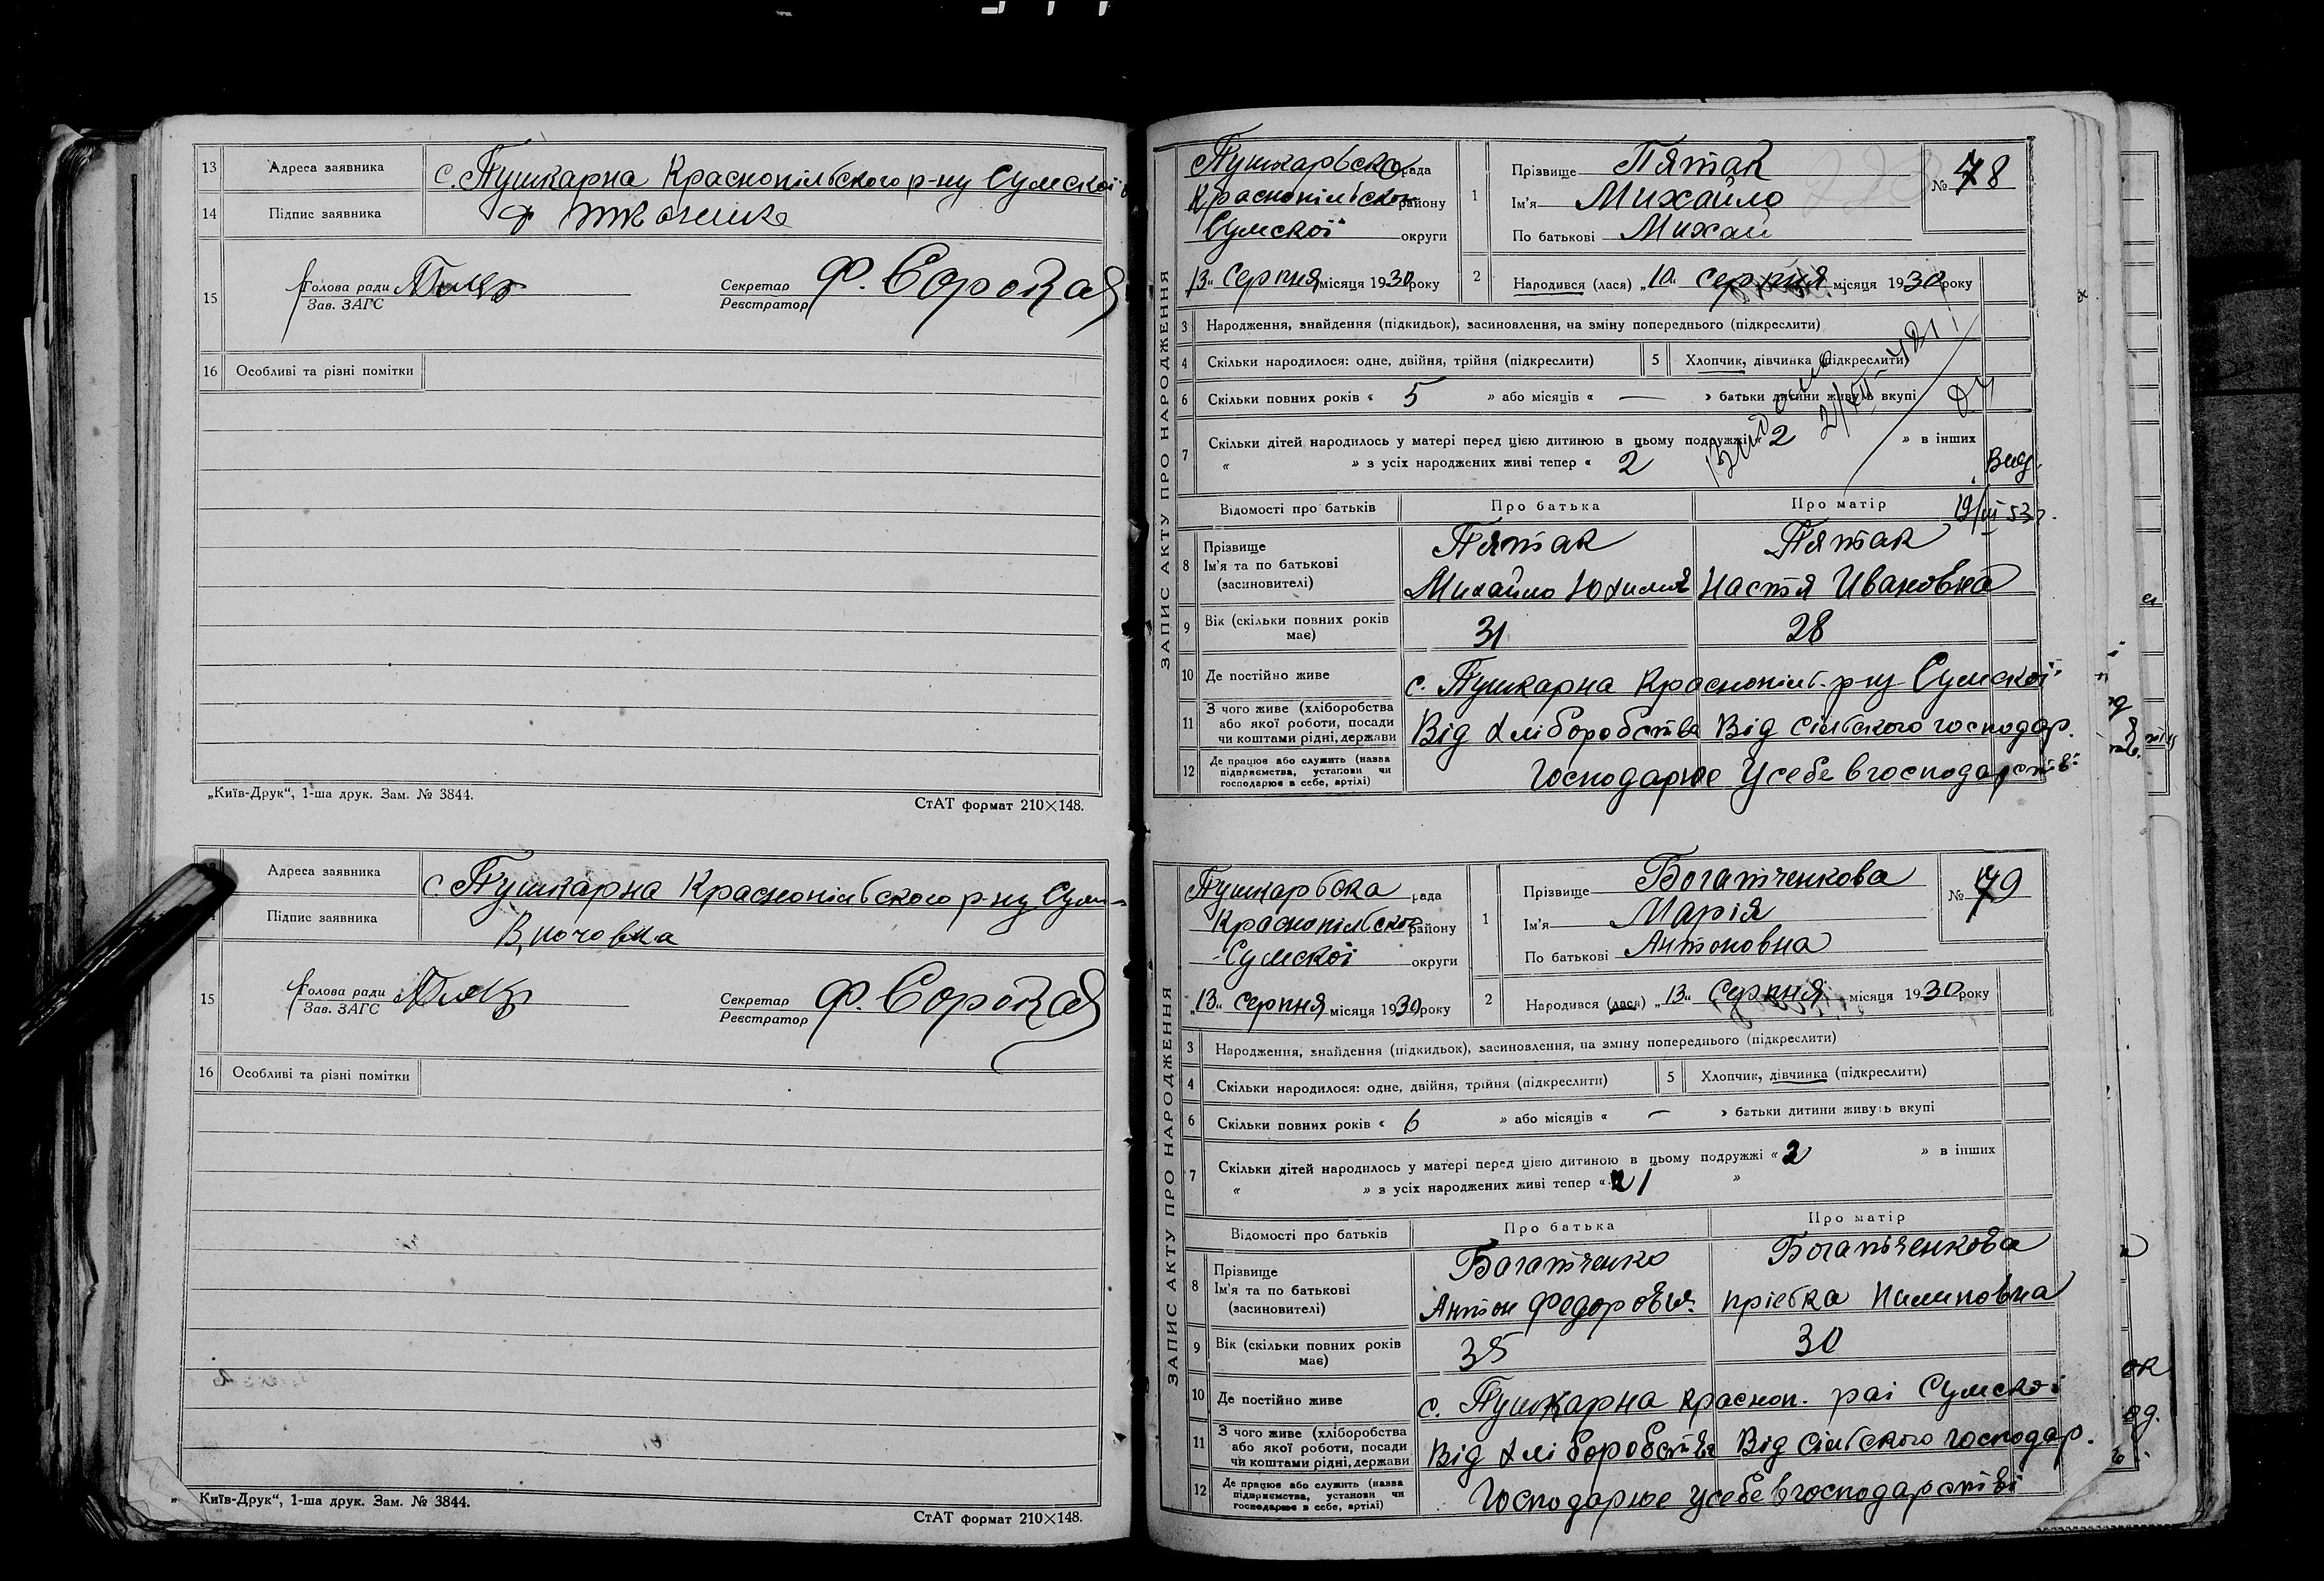 13 Адреса заявника с. Пушкарна Краснопільського р-ну Сумської
14 Підпис заявника
15 Голова ради
Зав. ЗАГС
Секретар Ф. Сорока
Реєстратор
16 Особливі та різні помітки
„Київ-Друк“, 1-ша друк. Зам. № 3844.
СтАТ формат 210×148.
Адреса заявника с. Пушкарна Краснопільського р-ну Сум-
Підпис заявника
15 Голова ради
Зав. ЗАГС
Секретар Ф. Сорока
Реєстратор
16 Особливі та різні помітки
„Київ-Друк“, 1-ша друк. Зам. № 3844.
СтАТ формат 210×148.
ЗАПИС АКТУ ПРО НАРОДЖЕННЯ
Пушкарьська рада
Краснопільского району
Сумскої округи
„13“ Серпня місяця 1930 року
1 Прізвище Пятак
Ім'я Михайло
По батькові Михай
№ 78
2 Народився (лася) „10“ серпня місяця 1930 року
3 Народження, знайдення (підкидьок), засиновлення, на зміну попереднього (підкреслити)
4 Скільки народилося: одне, двійня, трійня (підкреслити) 5 Хлопчик, дівчинка (підкреслити)
6 Скільки повних років « 5 » або місяців « — » батьки дитини живуть вкупі
7 Скільки дітей народилось у матері перед цією дитиною в цьому подружжі « 2 » в інших
« » з усіх народжених живі тепер « 2
Вид.
19/VI 53
Відомості про батьків Про батька Про матір
8 Прізвище Пятак Пятак
Ім'я та по батькові
(засиновителі) Михайло Юхимів Настя Ивановна
9 Вік (скільки повних років має) 31 28
10 Де постійно живе с. Пушкарна Краснопіль. р-ну Сумскої
11 З чого живе (хліборобства
або якої роботи, посади
чи коштами рідні, держави Від хліборобства Від сільского господар.
12 Де працює або служить (назва
підприємства, установи чи
господарює в себе, артілі) Господарює у себе в господарстві
ЗАПИС АКТУ ПРО НАРОДЖЕННЯ
Пушкарьска рада
Краснопільског району
Сумскої округи
„13“ серпня місяця 1930 року
1 Прізвище Богатченкова
Ім'я Марія
По батькові Антоновна
№ 79
2 Народився (лася) „13“ Серпня місяця 1930 року
3 Народження, знайдення (підкидьок), засиновлення, на зміну попереднього (підкреслити)
4 Скільки народилося: одне, двійня, трійня (підкреслити) 5 Хлопчик, дівчинка (підкреслити)
6 Скільки повних років « 6 » або місяців « — » батьки дитини живуть вкупі
7 Скільки дітей народилось у матері перед цією дитиною в цьому подружжі « 2 » в інших
« » з усіх народжених живі тепер « 1 »
Відомості про батьків Про батька Про матір
8 Прізвище Богатченко Богатьченкова
Ім'я та по батькові
(засиновителі) Антон Федорович Пилиповна
9 Вік (скільки повних років має) 35 30
10 Де постійно живе с. Пушкарна Красноп. раі Сумскої
11 З чого живе (хліборобства
або якої роботи, посади
чи коштами рідні, держави Від хліборобства Від сільського господар.
12 Де працює або служить (назва
підприємства, установи чи
господарює в себе, артілі) Господарює у себе в господарстві